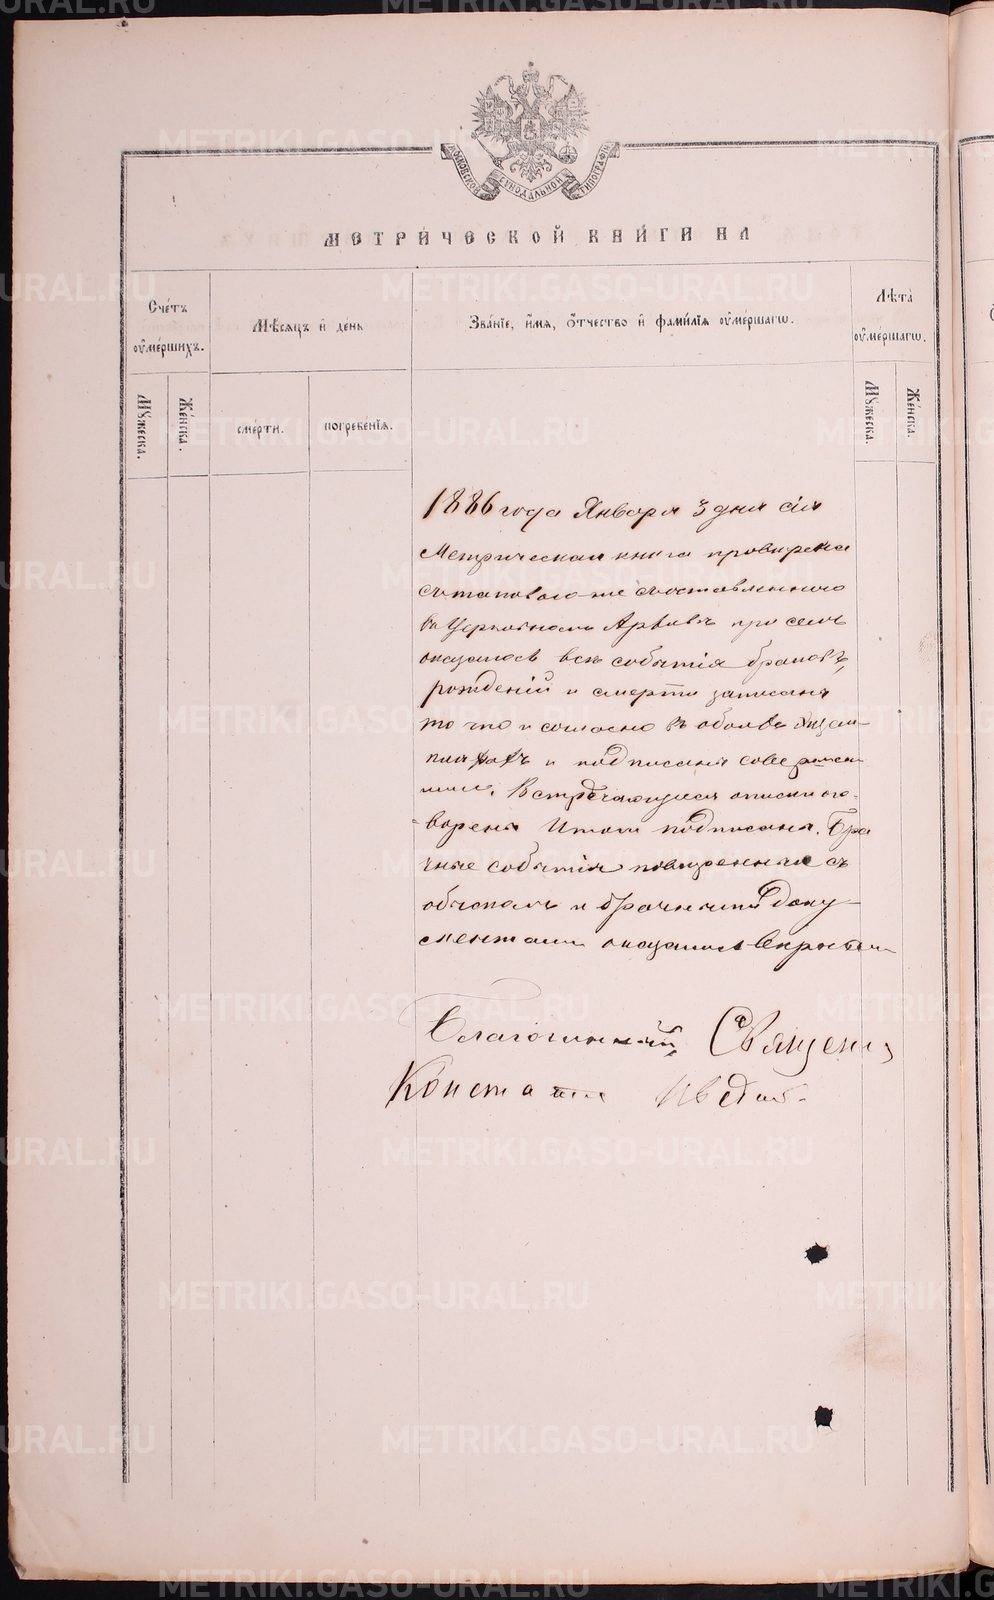 METRIKI.GASO-URAL.RU
МОСКОВСКОЙ СѴНОДАЛЬНОЙ ТИПОГРАФІИ
МЕТРИ́ЧЕСКОЙ КНИ́ГИ НА
Сче́тъ ᲂу҆ме́ршихъ.
Мѣ́сяцъ и҆ де́нь
Зва́нїе, и҆́мѧ, ѻ҆́тчество и҆ фами́лїѧ ᲂу҆ме́ршагѡ.
Лѣ́та ᲂу҆ме́ршагѡ.
Мꙋ́жеска.
Же́нска.
сме́рти.
погребе́нїѧ.
Мꙋ́жеска.
Же́нска.
1886 года Января 3 дня сія
Метрическая книга провѣрена
съ таковою же составленною
въ Церковномъ Архивѣ при семъ
оказалось всѣ событія браковъ,
рожденій и смерти записаны
точно и согласно въ обоихъ Экзем
плярахъ и подписаны совершен
ными. Встрѣчающіяся описки ого-
ворены Итоги подписаны. Бра
чные событія повѣренныя съ
обыскомъ и брачными доку
ментами оказались вѣрными
Благочинный, Священ
Константи